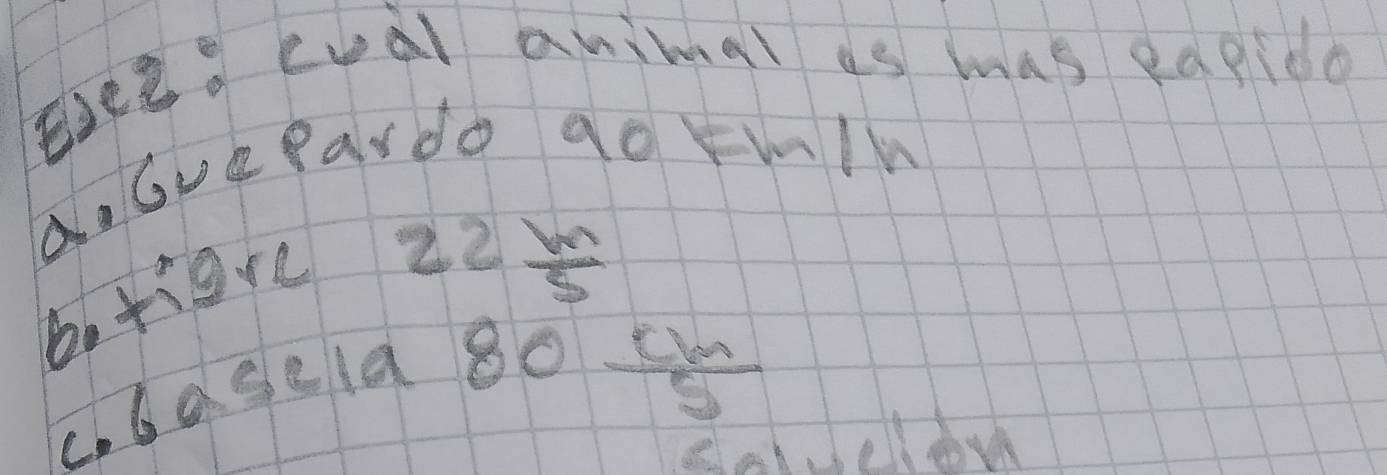 EJe2: cuàl animal es mas rapido
a. Guepardo 90 km/h
b. tigre 22 m/s
c. Gasela 80 cm/s
Solución